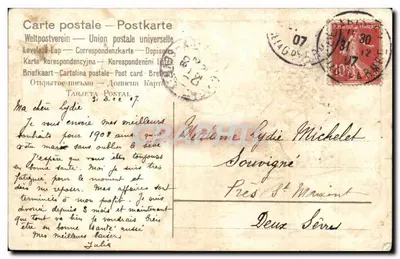 Carte postale – Postkarte
Weltpostverein – Union postale universelle
Levelező-Lap – Correspondenzkarte – Dopisnice
Karta korespondencyjna – Korespondenčni
Briefkaart – Cartolina postale – Post card – Brefkort
Открытое письмо – Дописна Карта
TARJETA POSTAL
07
30
07
10
31 Dec 07
Ma chère Lydie
Je vous envoie mes meilleurs
souhaits pour 1908 ainsi qu'à
votre maman sans oublier
J'espère que vous êtes toujours
en bonne santé. Moi je suis très
fatiguée pour le moment et
dois me reposer. Mes affaires sont
terminées à mon profit. Je suis
divorcée depuis 2 mois et maintenant
que tout va bien je voudrais bien
être en bonne santé aussi
Mes meilleurs baisers
Julia
Madame Lydie Michelet
Souvigné
Près St Maixent
Deux Sèvres